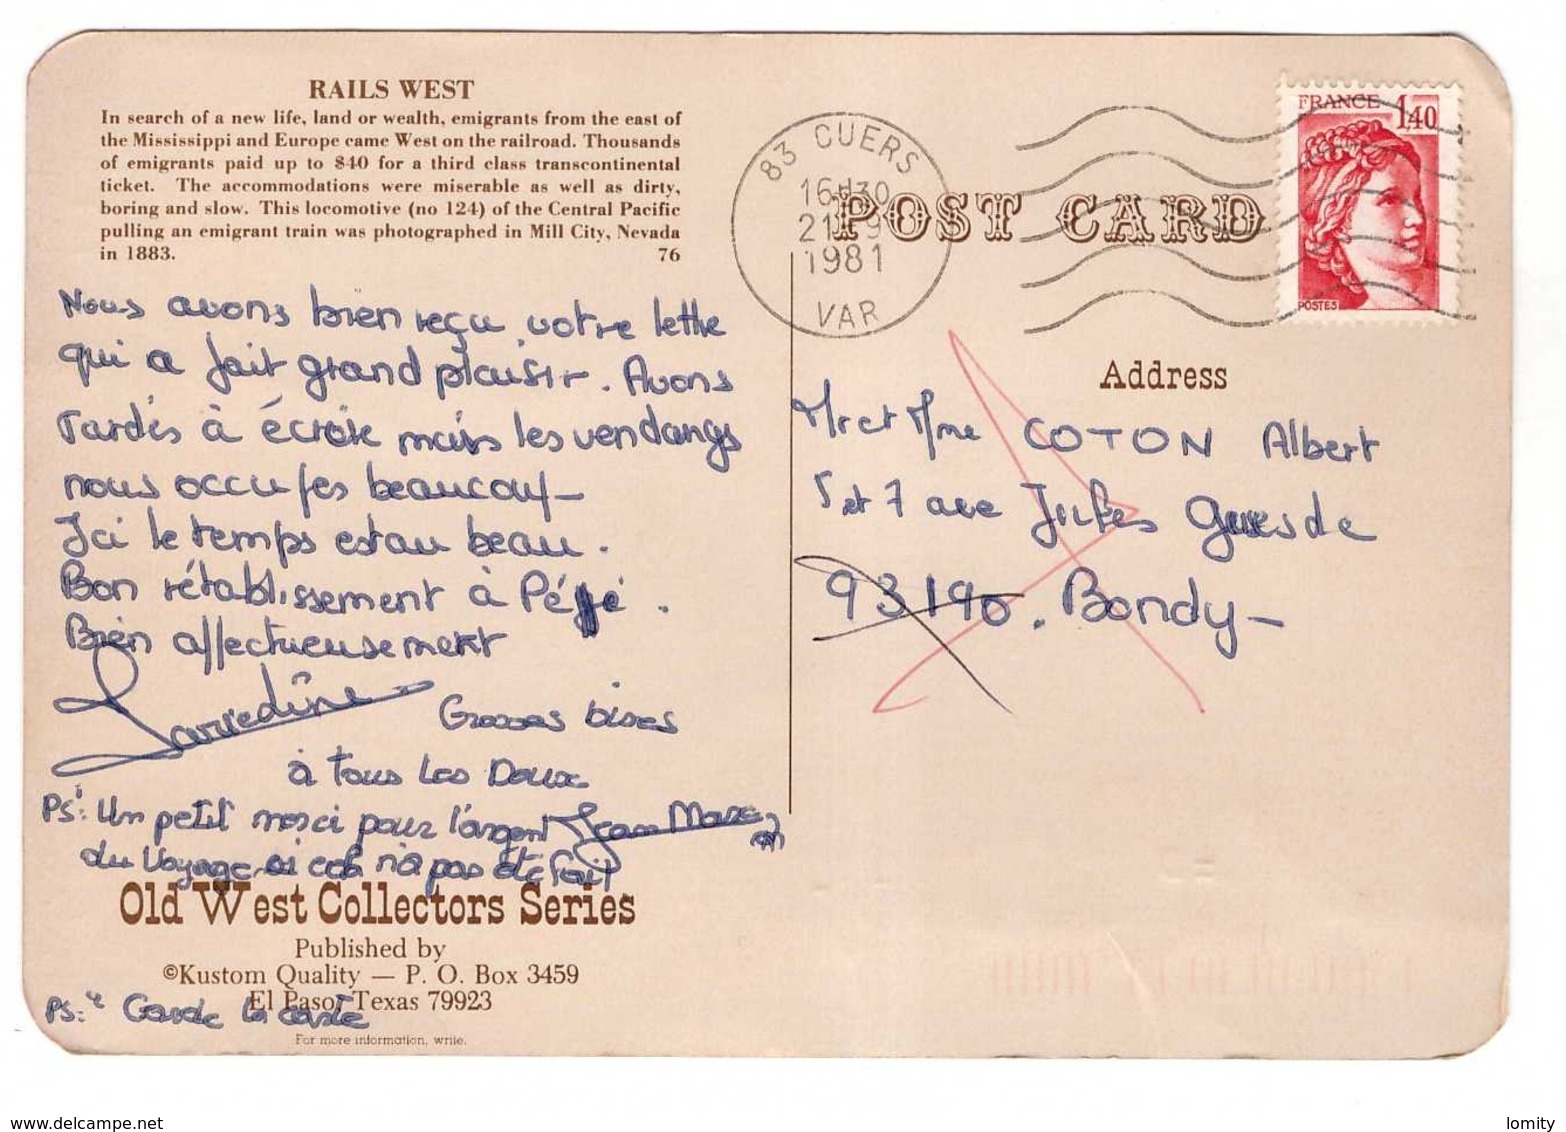 RAILS WEST
In search of a new life, land or wealth, emigrants from the east of
the Mississippi and Europe came West on the railroad. Thousands
of emigrants paid up to $40 for a third class transcontinental
ticket. The accommodations were miserable as well as dirty,
boring and slow. This locomotive (no 124) of the Central Pacific
pulling an emigrant train was photographed in Mill City, Nevada
in 1883. 76
Nous avons bien reçu votre lettre
qui a fait grand plaisir. Avons
Tardés à écrire mais les vendangs
nous occupes beaucoup_
Ici le temps estau beau.
Bon rétablissement à Pépé.
Bien affectueusement
Grosses bises
à tous les Deux
PS: Un petit merci pour l'argent Jean Marc
du voyage si cela n'a pas été fait
Old West Collectors Series
Published by
©Kustom Quality — P. O. Box 3459
El Paso, Texas 79923
PS: Garde la carte
For more information, write.
83 CUERS
16H30
21-9
1981
VAR
POST CARD
FRANCE 1,40
POSTES
Address
Mr et Mme COTON Albert
5 et 7 ave Jules Guesde
93190. Bondy_
www.delcampe.net
lomity